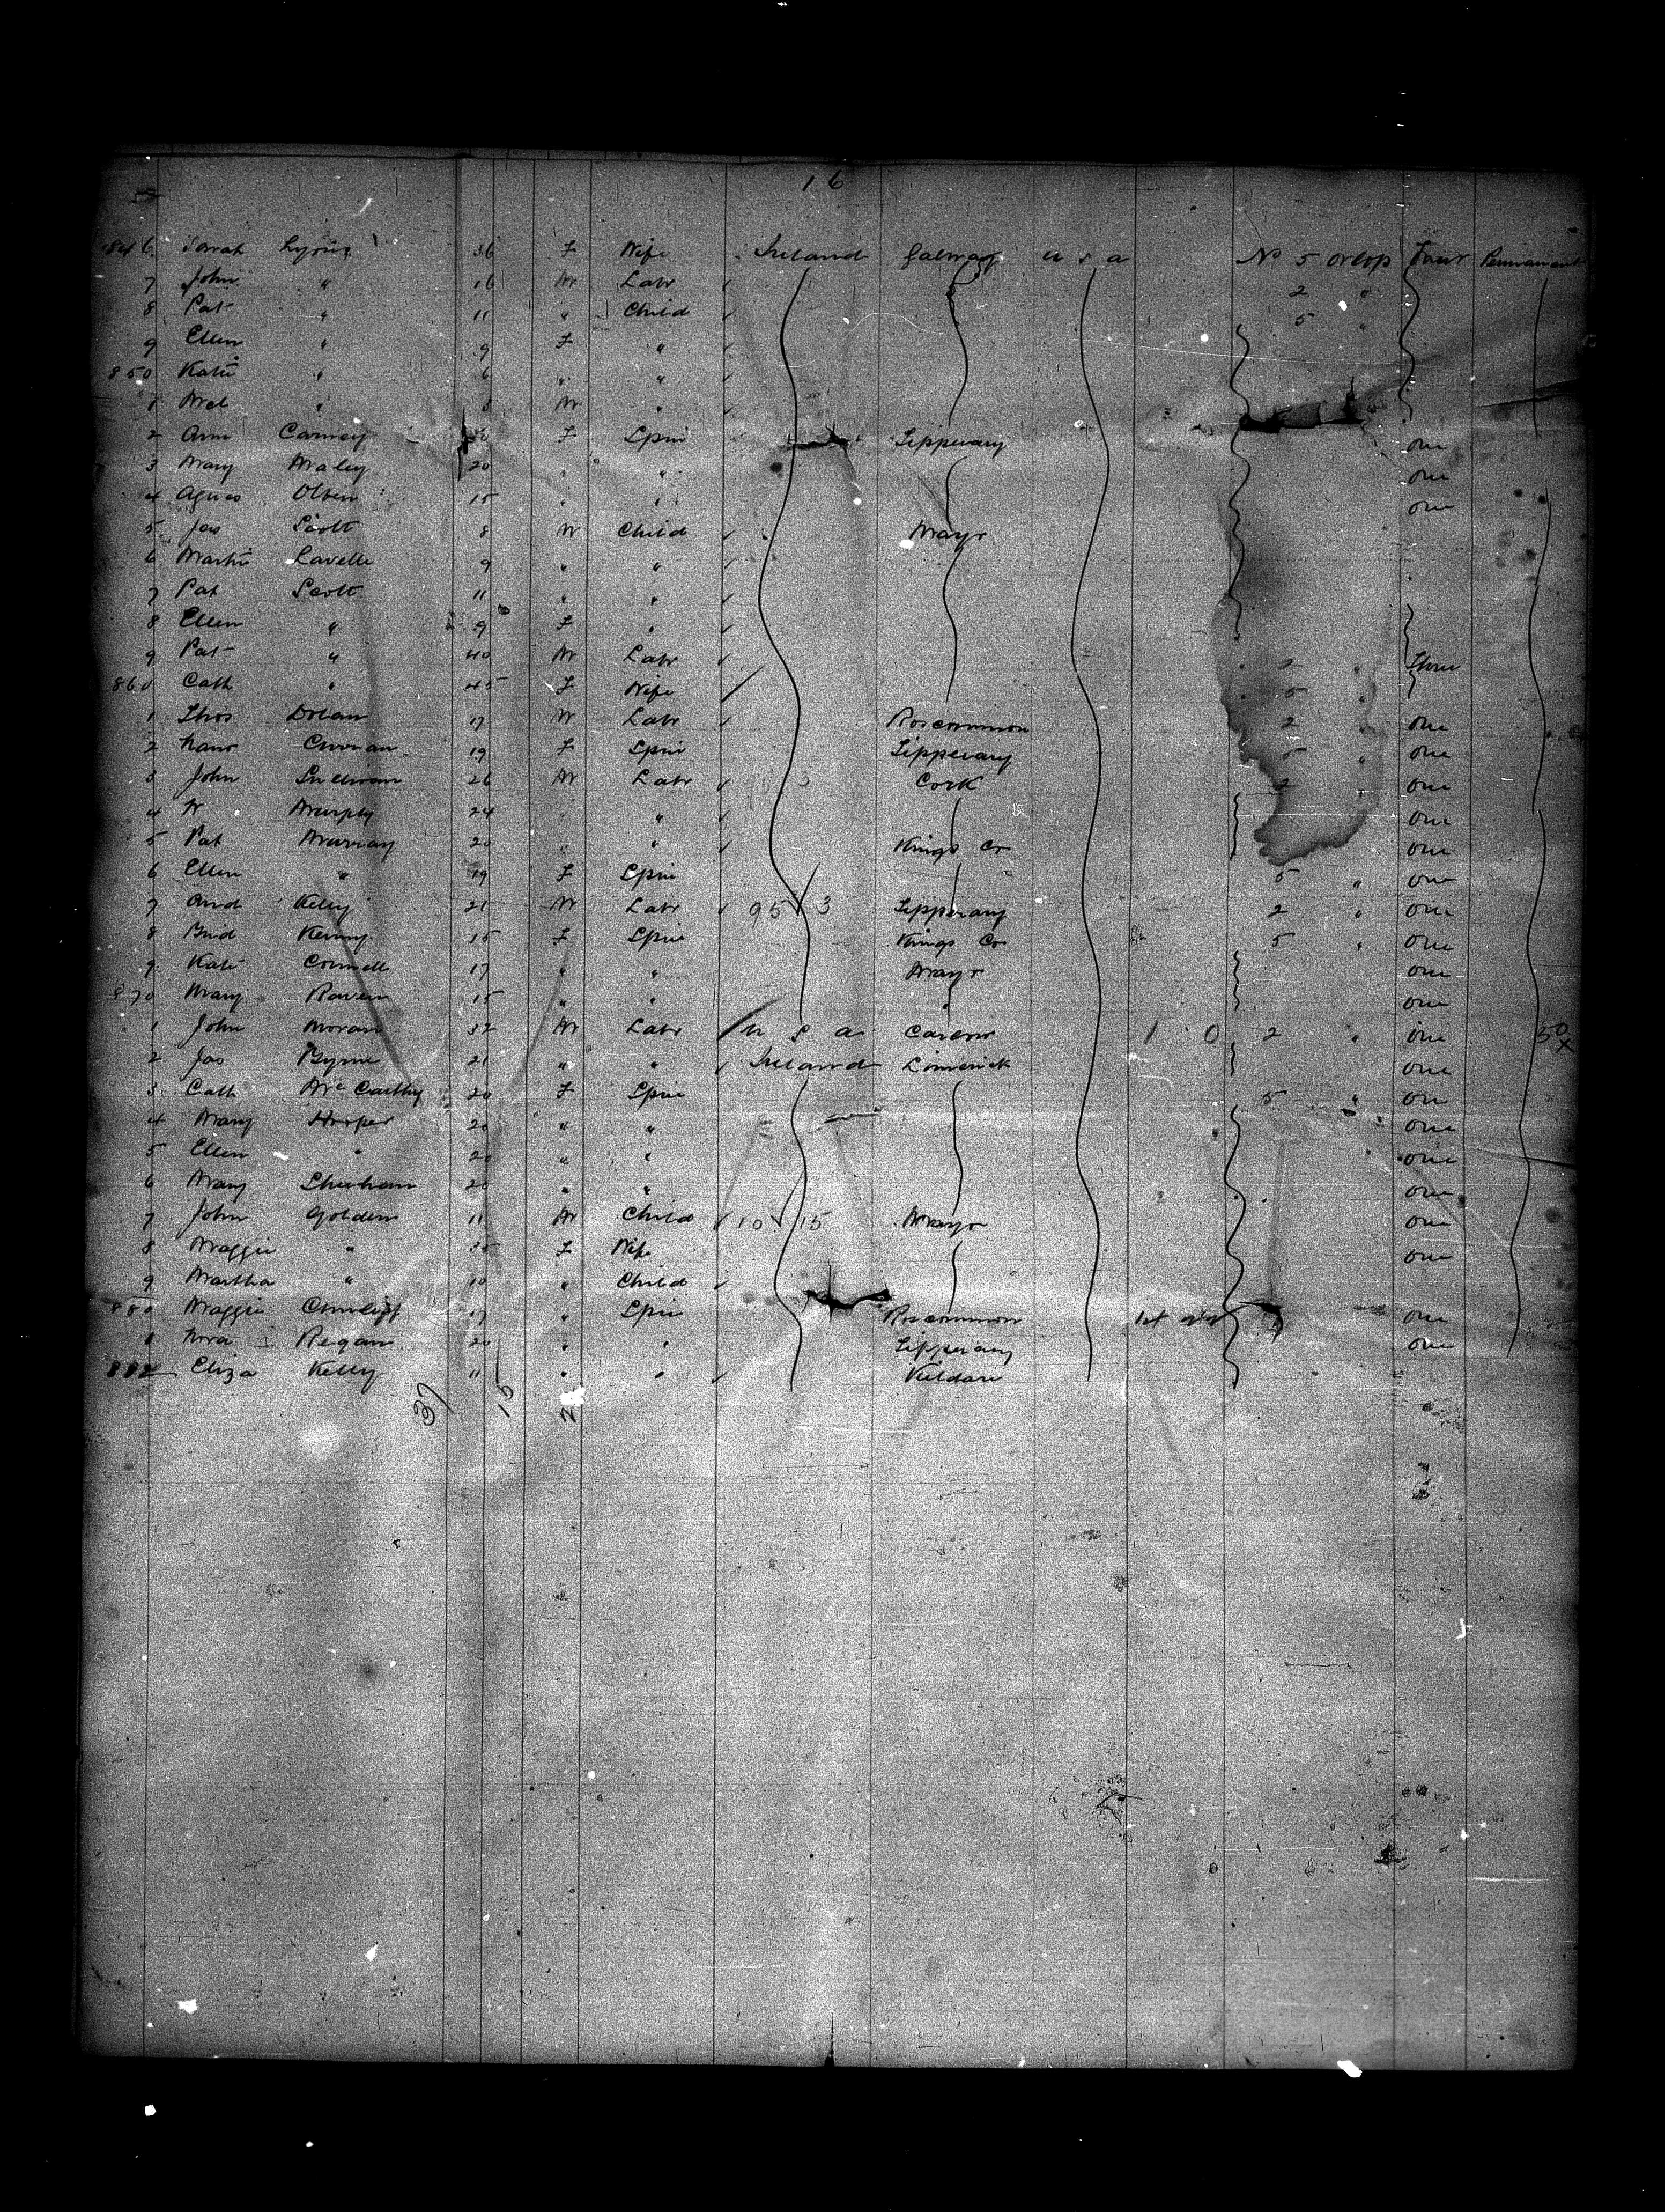 16
846 Sarah Lyons 36 F Wife Ireland Galway U S A No 5 Orlop Four Permanent
7 John " 16 M Labr 2 "
8 Pat " 11 " Child 5 "
9 Ellen " 9 F "
850 Kate " 6 " "
1 " M "
2 Carney F Spin Tipperary One
3 Mary Maley 20 " " One
4 Agnes 15 " " One
5 Jas Scott 8 M Child Mayo
6 Martin Lavelle 9 " "
7 Pat Scott 11 " "
8 Ellen " 9 F "
9 Pat " 40 M Labr 2 " Three
860 Cath " 45 F Wife 5 "
1 Thos Dolan 17 M Labr Roscommon 2 " One
2 19 F Spin Tipperary 5 " One
3 John Sullivan 26 M Labr Cork 2 One
4 M Murphy 24 " One
5 Pat Murray 20 " " Kings Co One
6 Ellen " 19 F Spin 5 " One
7 And Kelly 21 M Labr 95 3 Tipperary 2 " One
8 Brid Kenny 15 F Spin Kings Co 5 " One
9 Kate Connell 17 " " Mayo One
870 Mary 15 " " " One
1 John Moran 32 M Labr U S A Carlow 1 0 2 " One 50 X
2 Jas Byrne 21 " " Ireland Limerick One
3 Cath McCarthy 20 F Spin 5 " One
4 Mary Harper 20 " " One
5 Ellen " 20 " " One
6 Mary Sheehan 20 " " One
7 John Golden 11 M Child 10 15 Mayo One
8 Maggie " 35 F Wife One
9 Martha " 10 " Child
880 Maggie 17 " Spin Roscommon One
1 Nora Regan 20 " " Tipperary One
882 Eliza Kelly 11 " " Kildare
37 15